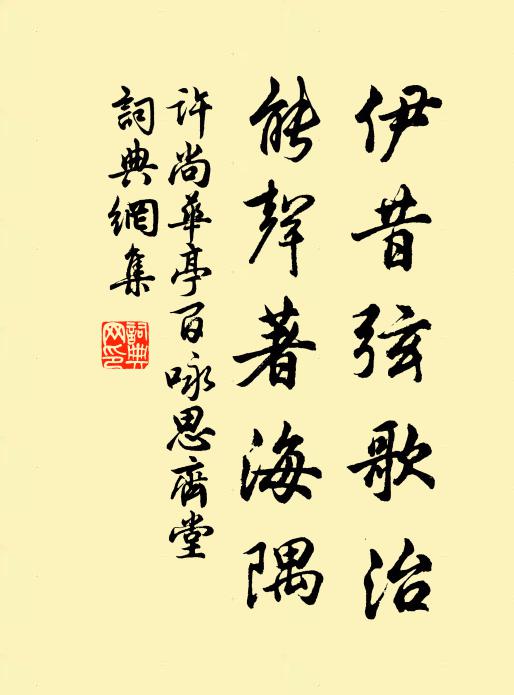 伊昔弦歌治
能聲著海隅
許尚華亭百咏思齊堂
詞典網集
詞典网印